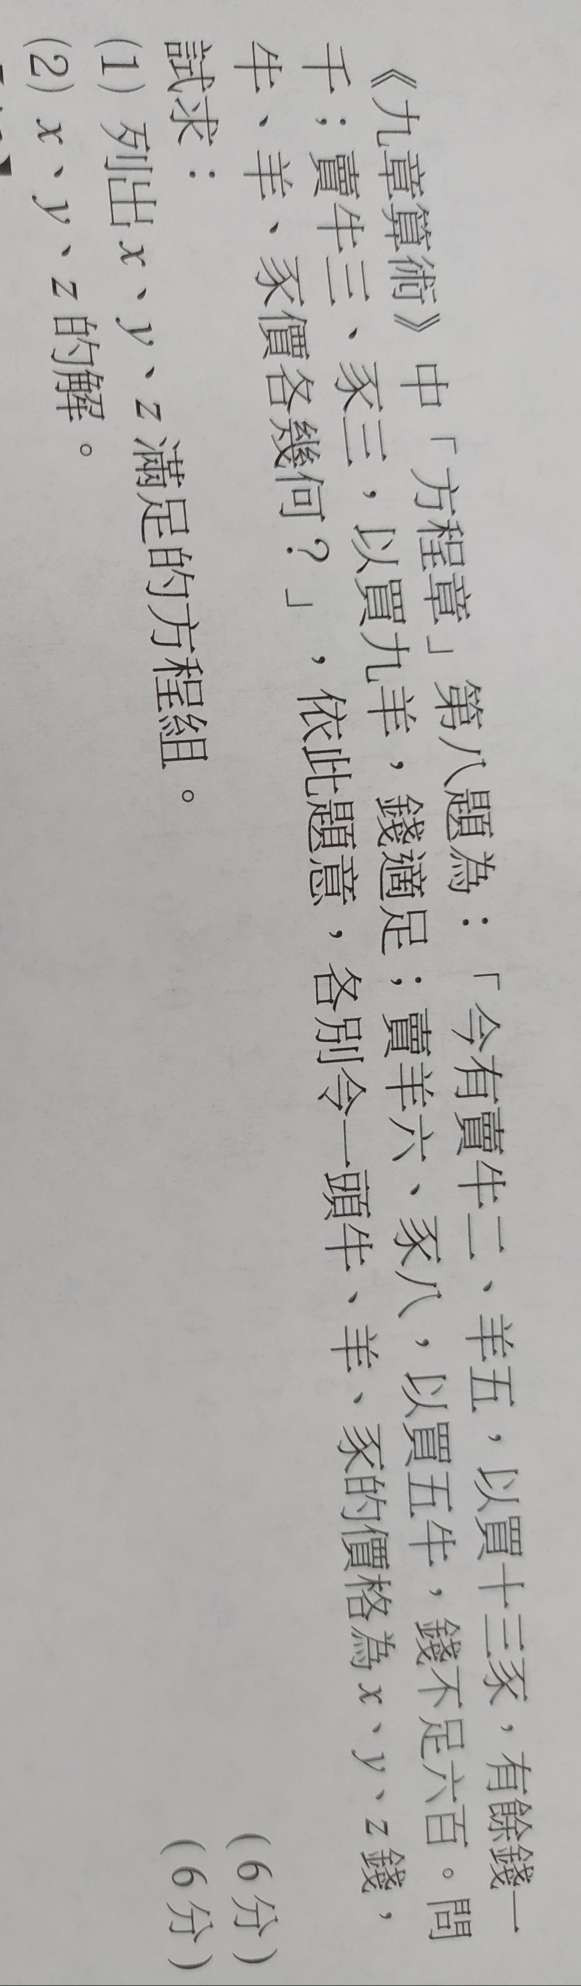 《九章算術》中「方程章」第八題為：「今有賣牛二、羊五，以買十三豕，有餘錢一
千；賣牛三、豕三，以買九羊，錢適足；賣羊六、豕八，以買五牛，錢不足六百。問
牛、羊、豕價各幾何？」，依此題意，各別令一頭牛、羊、豕的價格為 x、y、z 錢，
試求：
(1) 列出 x、y、z 滿足的方程組。 (6分)
(2) x、y、z 的解。 (6分)